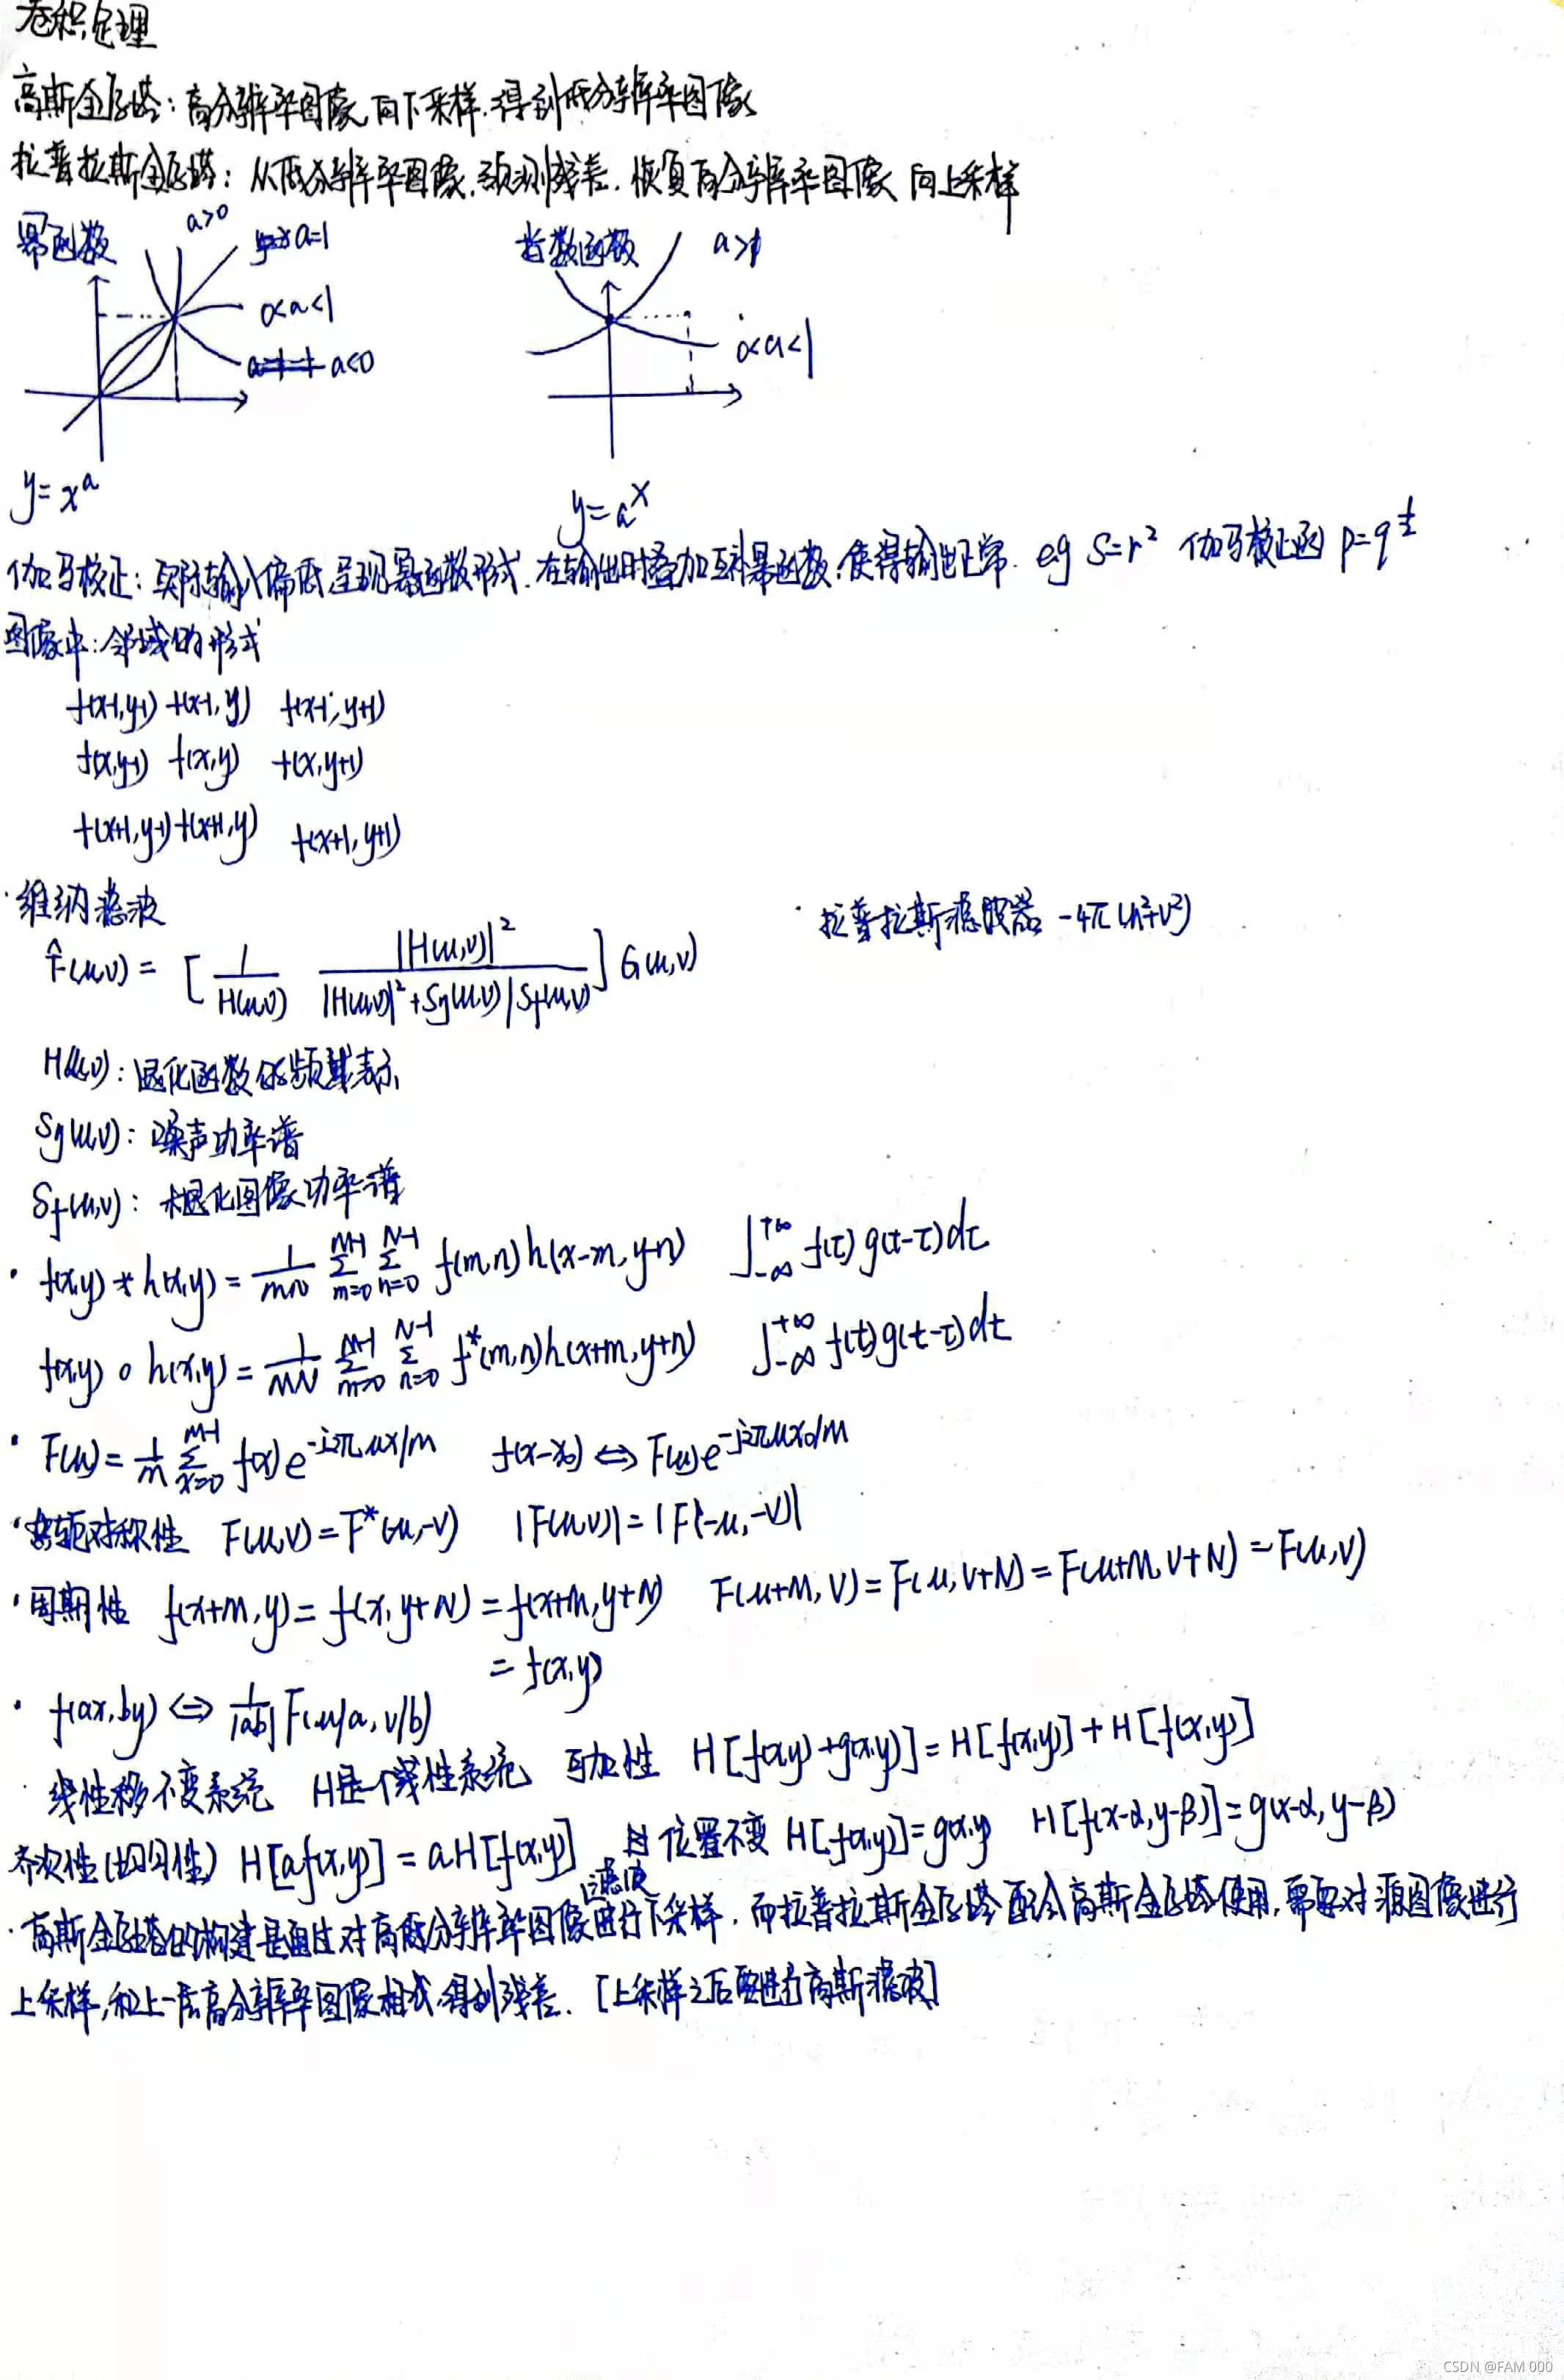 卷积定理
高斯金字塔：高分辨率图像向下采样.得到低分辨率图像
拉普拉斯金字塔：从低分辨率图像,预测残差.恢复高分辨率图像 向上采样
幂函数 a>0 a=1 指数函数 a>1
0<a<1 0<a<1
a<0
y=x^a y=a^x
伽马校正：实际输入偏低,呈现幂函数形式.在输出时叠加互补幂函数,使得输出正常. eg S=r² 伽马校正函 p=q^½
图像中：邻域的形式
f(x-1,y-1) f(x-1,y) f(x-1,y+1)
f(x,y-1) f(x,y) f(x,y+1)
f(x+1,y-1) f(x+1,y) f(x+1,y+1)
·维纳滤波 ·拉普拉斯滤波器 -4π(u²+v²)
F̂(u,v) = [ 1/H(u,v) |H(u,v)|²/(|H(u,v)|²+Sg(u,v)/Sf(u,v)) ] G(u,v)
H(u,v)：退化函数的频域表示
Sg(u,v)：噪声功率谱
Sf(u,v)：未退化图像功率谱
· f(x,y)*h(x,y) = 1/MN Σ_{m=0}^{M-1} Σ_{n=0}^{N-1} f(m,n)h(x-m,y-n) ∫_{-∞}^{+∞} f(τ)g(t-τ)dτ
f(x,y)∘h(x,y) = 1/MN Σ_{m=0}^{M-1} Σ_{n=0}^{N-1} f*(m,n)h(x+m,y+n) ∫_{-∞}^{+∞} f(t)g(t-τ)dt
· F(u) = 1/M Σ_{x=0}^{M-1} f(x)e^{-j2πux/M} f(x-x₀) ⇔ F(u)e^{-j2πux₀/M}
·共轭对称性 F(u,v)=F*(-u,-v) |F(u,v)|=|F(-u,-v)|
·周期性 f(x+M,y)=f(x,y+N)=f(x+M,y+N) F(u+M,v)=F(u,v+N)=F(u+M,v+N)=F(u,v)
=f(x,y)
· f(ax,by) ⇔ 1/|ab| F(u/a,v/b)
·线性移不变系统 H是一个线性系统 可加性 H[f(x,y)+g(x,y)]=H[f(x,y)]+H[f(x,y)]
齐次性(均匀性) H[af(x,y)]=aH[f(x,y)] 且位置不变 H[f(x,y)]=g(x,y) H[f(x-α,y-β)]=g(x-α,y-β)
滤波
·高斯金字塔的构建是通过对高分辨率图像进行下采样.而拉普拉斯金字塔配合高斯金字塔使用,需要对源图像进行
上采样,和上一层高分辨率图像相减,得到残差.[上采样之后要进行高斯滤波]
CSDN @FAM 000